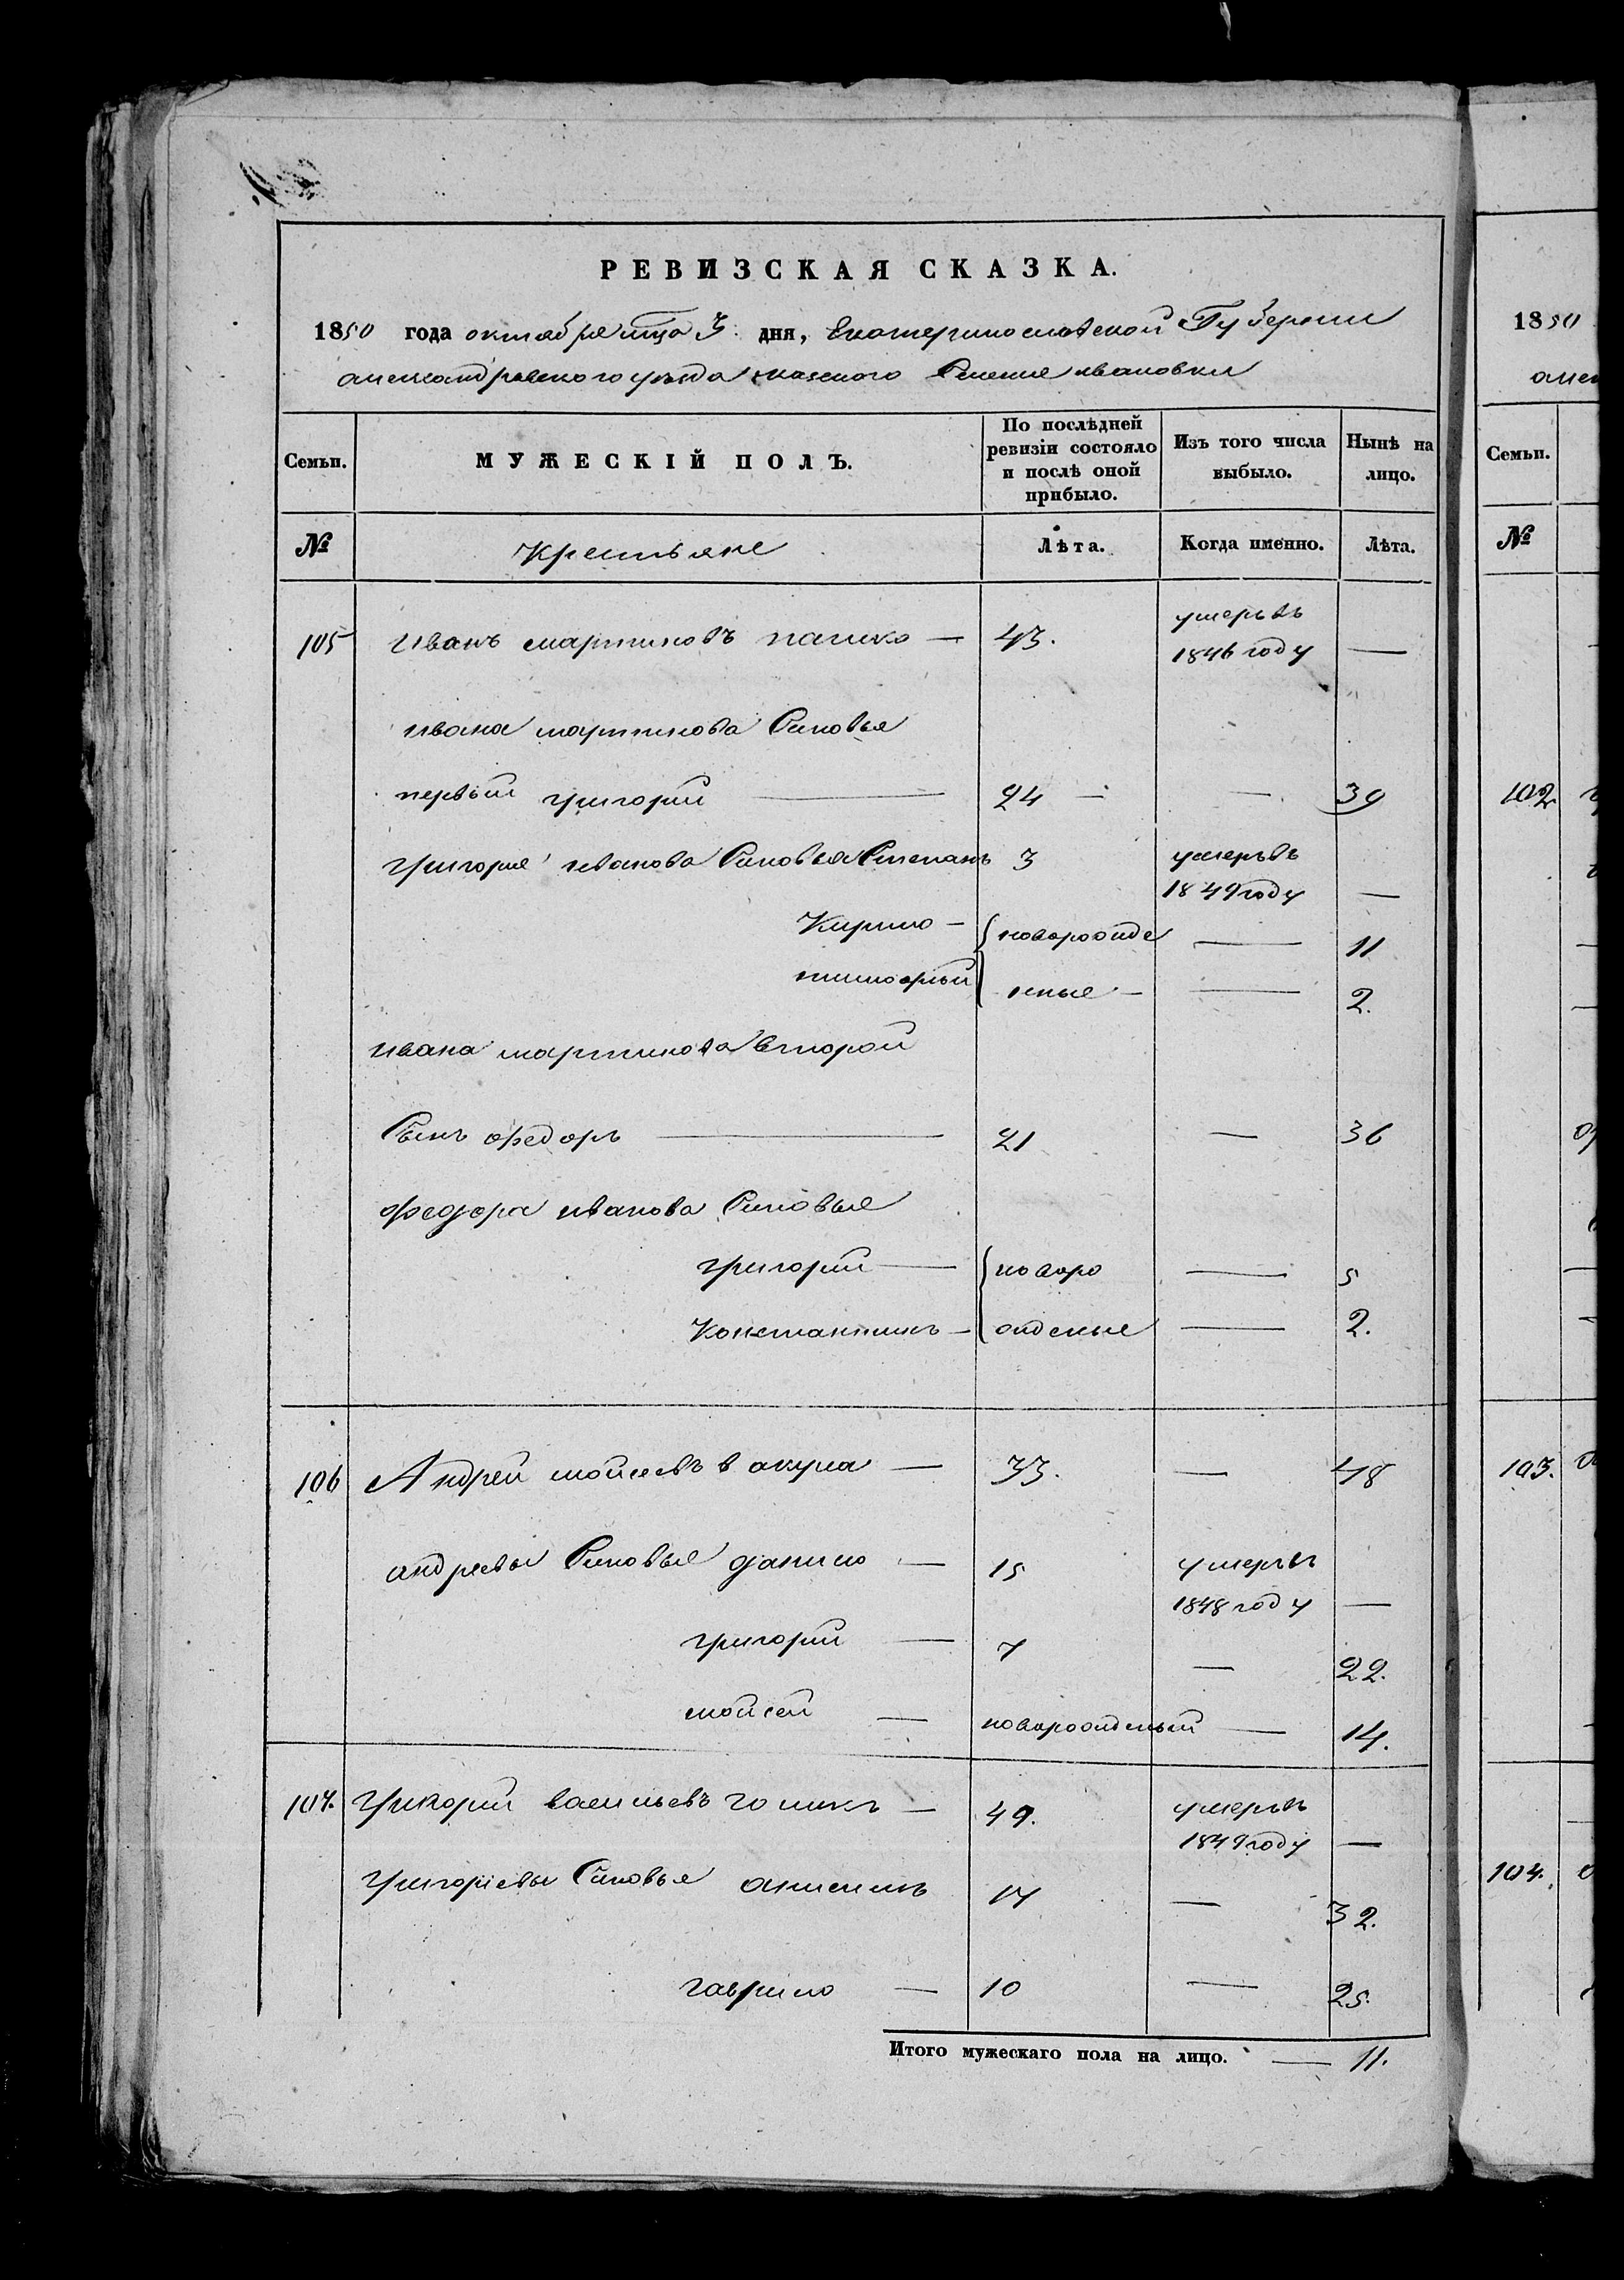 РЕВИЗСКАЯ СКАЗКА.
1850 года октября мца 3 дня, Екатеринославской Губернии
александровского уезда казеного Селения ивановки
Семьи.
МУЖЕСКІЙ ПОЛЪ.
По послѣдней ревизіи состояло и послѣ оной прибыло.
Изъ того числа выбыло.
Нынѣ на лицо.
№ Крестьяне Лѣта. Когда именно. Лѣта.
105 Иванъ мартиновъ пашко — 43. умеръ въ
1846 году —
ивана мартинова Синовья
первый григорий — 24 — — 39
григория иванова Синовья Степанъ 3 умеръ въ
1849 году —
Кирило — { новорожде — 11
тимофрий } ные — — 2.
ивана мартинова второй
Сынъ федоръ — 21 — 36
федора иванова Синовья
григорий — { новоро — 5
Константинъ — { жденые — 2.
106 Андрей мойсеевъ вакула — 33. — 48
андреевы Синовья данило — 15 умеръ въ
1848 году —
григорий — 7 — 22.
мойсей — новорожденый — 14.
107. григорий васильевъ — 49. умеръ въ
1849 году —
григоріевы Синовья анисимъ 17 — 32.
гаврило — 10 — 25.
Итого мужескаго пола на лицо. — 11.
1850
Семьи.
№
102
103.
104.